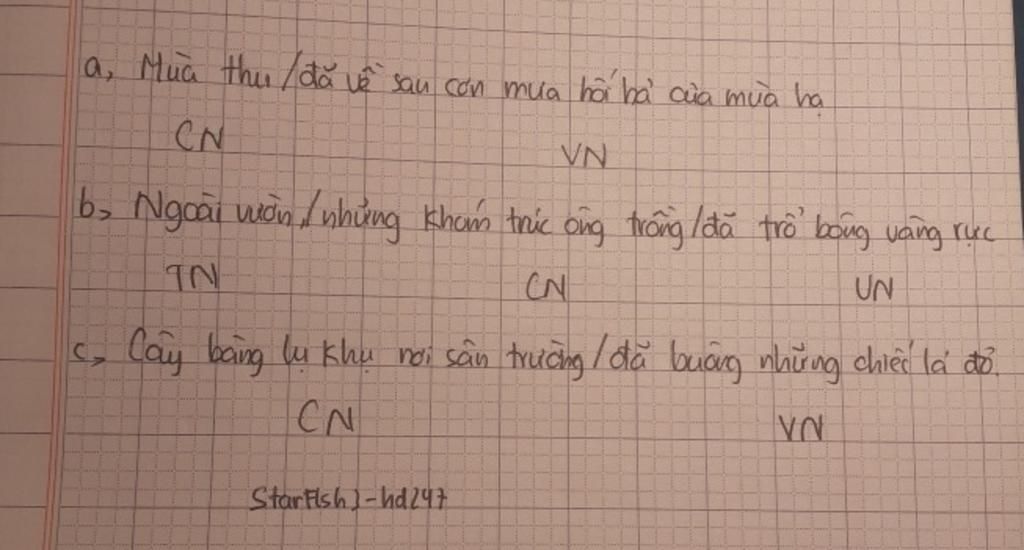 a, Mùa thu / đã về sau cơn mưa hối hả của mùa hạ
CN VN
b, Ngoài vườn, / những khóm trúc ông trồng / đã trổ bông vàng rực
TN CN VN
c, Cây bàng lụ khụ nơi sân trường / đã buông những chiếc lá đỏ.
CN VN